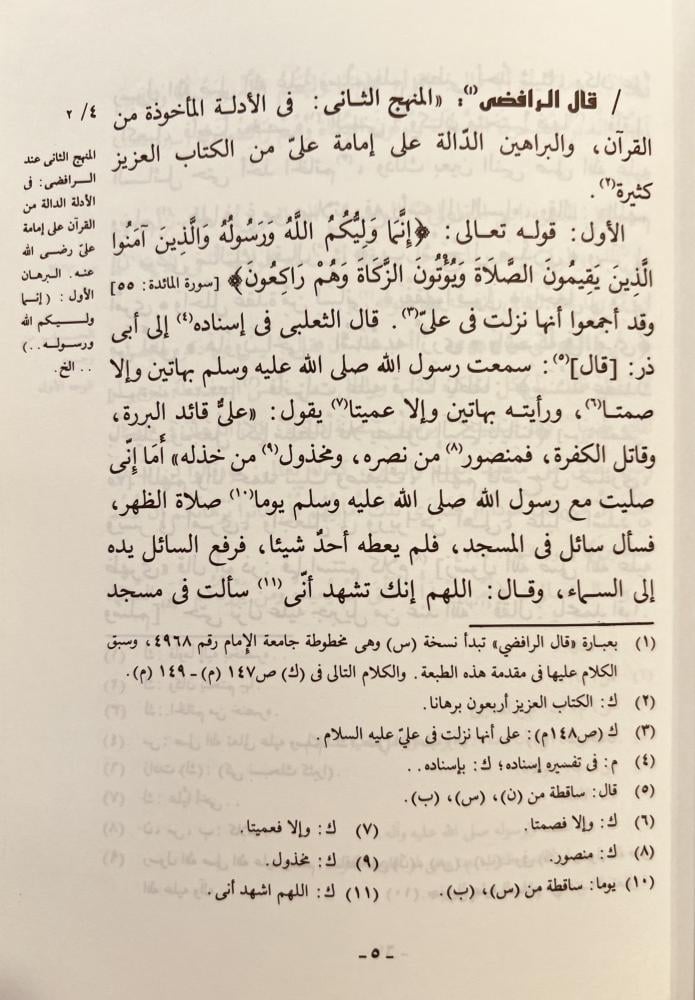 / قال الرافضى(١): «المنهج الثانى: فى الأدلة المأخوذة من
القرآن، والبراهين الدّالة على إمامة علىّ من الكتاب العزيز
كثيرة(٢).
الأول: قوله تعالى: ﴿إِنَّمَا وَلِيُّكُمُ اللَّهُ وَرَسُولُهُ وَالَّذِينَ آمَنُوا
الَّذِينَ يَقِيمُونَ الصَّلَاةَ وَيُؤْتُونَ الزَّكَاةَ وَهُمْ رَاكِعُونَ﴾ [سورة المائدة: ٥٥]
وقد أجمعوا أنها نزلت فى علىّ(٣). قال الثعلبى فى إسناده(٤) إلى أبى
ذر: [قال](٥): سمعت رسول الله صلى الله عليه وسلم بهاتين وإلا
صمتا(٦)، ورأيته بهاتين وإلا عميتا(٧) يقول: «علىُّ قائد البررة،
وقاتل الكفرة، فمنصور(٨) من نصره، ومخذول(٩) من خذله» أَمَا إِنّى
صليت مع رسول الله صلى الله عليه وسلم يوما(١٠) صلاة الظهر،
فسأل سائل فى المسجد، فلم يعطه أحدٌ شيئا، فرفع السائل يده
إلى السماء، وقال: اللهم إنك تشهد أنّى(١١) سألت فى مسجد
٤/ ٢
المنهج الثانى عند
الرافضى: فى
الأدلة الدالة من
القرآن على إمامة
علىّ رضى الله
عنه. البرهان
الأول: (إنما
وليكم الله
ورسوله..)
.. الخ.
(١) بعبارة «قال الرافضي» تبدأ نسخة (س) وهى مخطوطة جامعة الإمام رقم ٤٩٦٨، وسبق
الكلام عليها فى مقدمة هذه الطبعة. والكلام التالى فى (ك) ص١٤٧ (م) - ١٤٩ (م).
(٢) ك: الكتاب العزيز أربعون برهانا.
(٣) ك (ص١٤٨م): على أنها نزلت فى علىّ عليه السلام.
(٤) م: فى تفسيره إسناده؛ ك: بإسناده..
(٥) قال: ساقطة من (ن)، (س)، (ب).
(٦) ك: وإلا فصمتا. (٧) ك: وإلا فعميتا.
(٨) ك: منصور. (٩) ك: مخذول.
(١٠) يوما: ساقطة من (س)، (ب). (١١) ك: اللهم اشهد أنى.
- ٥ -